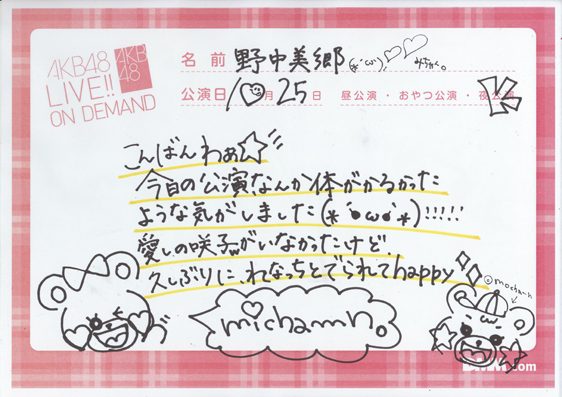 AKB48
LIVE!!
ON DEMAND
AKB
48
名前 野中美郷
みちゃん。
公演日 10月25日 昼公演・おやつ公演・夜公演
こんばんわぁ☆
今日の公演なんか体がかるかった
ような気がしました(*´๐ω๐`*)!!!!!
愛しの咲子がいなかったけど
久しぶりに、れなっちとでられてhappy
michamn。
mocha-n
.com